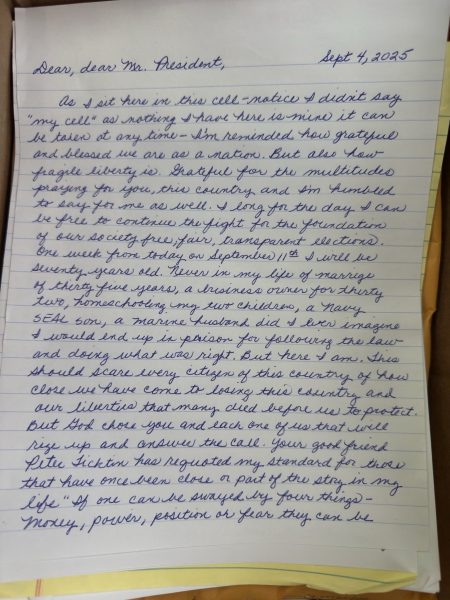 Sept 4, 2025
Dear, dear Mr. President,
As I sit here in this cell-notice I didn't say
"my cell" as nothing I have here is mine it can
be taken at any time - I'm reminded how grateful
and blessed we are as a nation. But also how
fragile liberty is. Grateful for the multitudes
praying for you, this country and I'm humbled
to say for me as well. I long for the day I can
be free to continue the fight for the foundation
of our society free, fair, transparent elections.
One week from today on September 11th I will be
seventy years old. Never in my life of marriage
of thirty five years, a business owner for thirty
two, homeschooling my two children, a Navy
SEAL son, a marine husband did I ever imagine
I would end up in prison for following the law
and doing what was right. But here I am. This
should scare every citizen of this country of how
close we have come to losing this country and
our liberties that many died before us to protect.
But God chose you and each one of us that will
rize up and answer the call. Your good friend
Peter Ticktin has requoted my standard for those
that have once been close or part of the story in my
life "If one can be swayed by four things -
Money, power, position or fear they can be